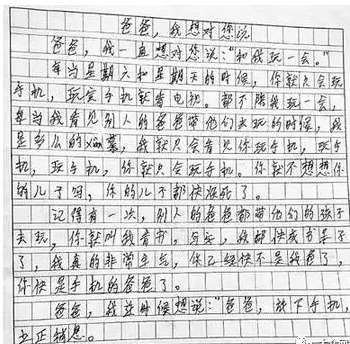 爸爸,我想对您说
爸爸,我一直想对您说:“和我玩一会。”
每当星期六和星期天的时候,你就只会玩
手机,玩完手机就看电视。都不陪我玩一会,
每当我看见别人的爸爸带他们去玩的时候,我
是多么的xian慕,我就只会看见你玩手机,玩手
机,玩手机,你就只会玩手机。你就不想想你
的儿子吗,你的儿子都快寂死了。
记得有一次,别人的爸爸都带他们的孩子
去玩,你就叫我看书,写字,我都快成书呆子
了,我真的非常生气,你已经快不是我爸了,
你快是手机的爸爸了。
爸爸,我这时候想说:“爸爸,放下手机,
立正稍息。